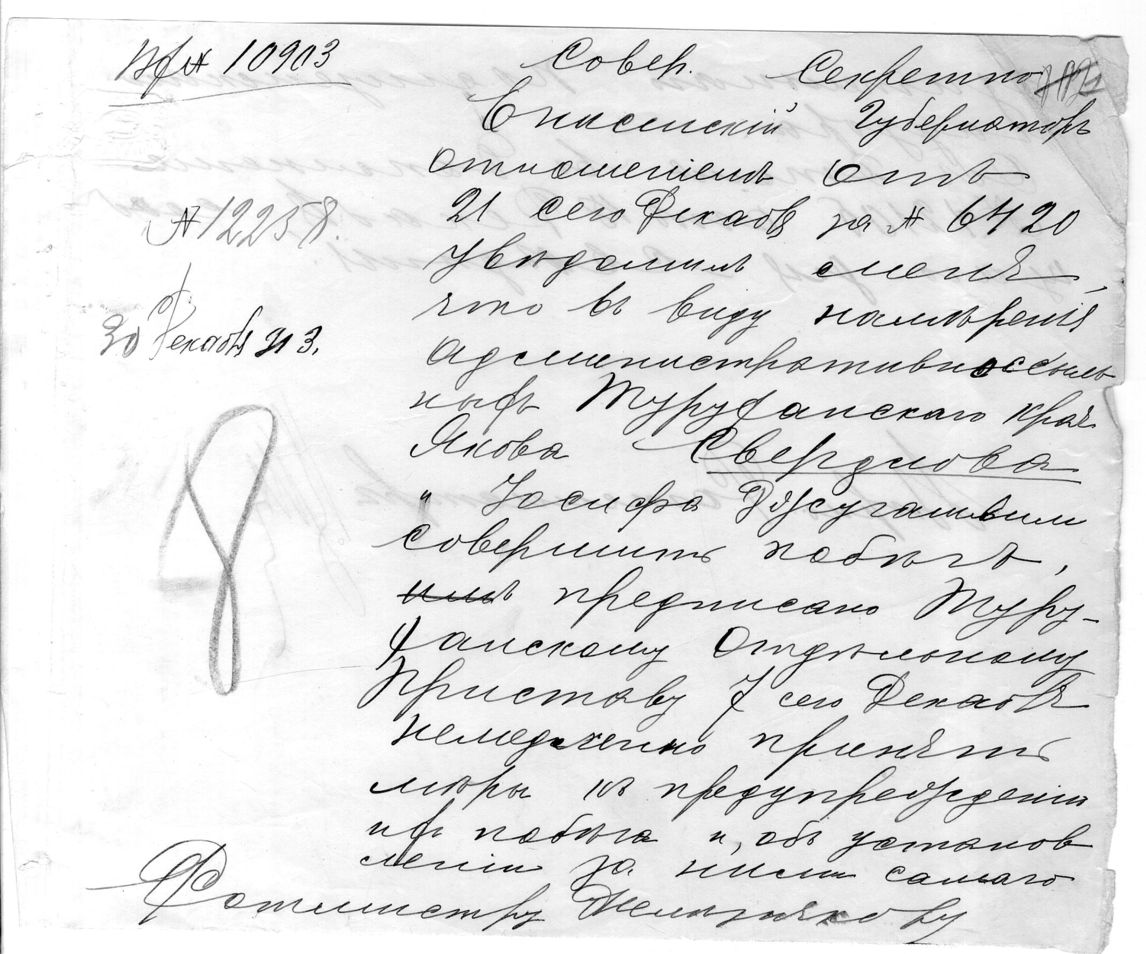 № 10903
Совер. Секретно
Енисейскій Губернаторъ
отношеніемъ отъ
21 сего Декабря за № 6420
увѣдомилъ меня,
что въ виду намѣренія
административноссыль
ныхъ Туруханскаго края
Якова Свердлова
и Іосифа Джугашвили
совершить побѣгъ,
имъ предписано Туру-
ханскому Отдѣльному
Приставу 7 сего Декабря
немедленно принять
мѣры къ предупрежденію
ихъ побѣга и, объ установ
леніи за ними самаго
Ротмистру Железнякову
№ 12258.
30 Декабря 913.